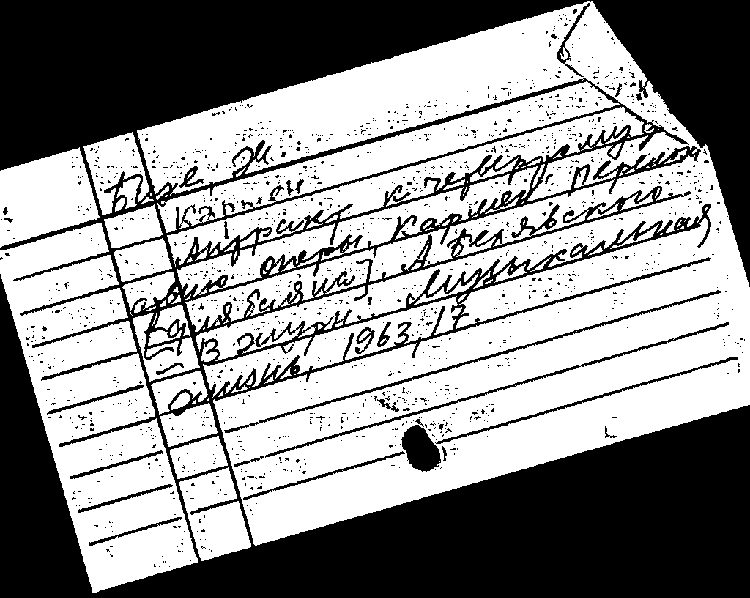 Бизе, Ж.
Кармен.
Антракт к четвертому д
ствию оперы. Кармен. Перелож
[для баяна]. А. Белявского.
В журн.: Музыкальная
жизнь, 1963, 17.